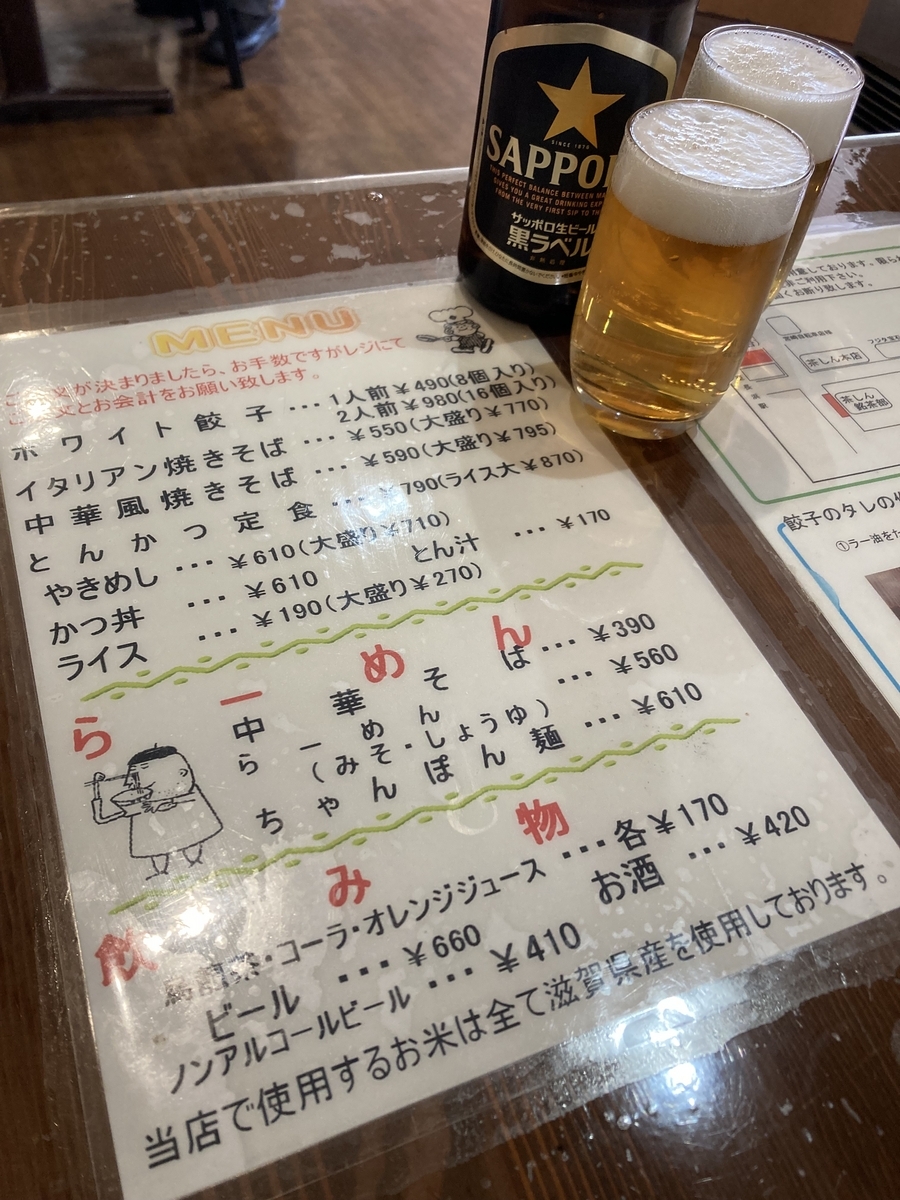 SINCE 1876
SAPPO
THIS PERFECT BALANCE BETWEEN
GIVES YOU A GREAT DRINKING
FROM THE VERY FIRST SIP TO
サッポロ生ビール
黒ラベル
MENU
ご注文が決まりましたら、お手数ですがレジにて
ご注文とお会計をお願い致します。
ホワイト餃子 … 1人前¥490(8個入り)
2人前¥980(16個入り)
イタリアン焼きそば … ¥550(大盛り¥770)
中華風焼きそば … ¥590(大盛り¥795)
とんかつ定食 … ¥790(ライス大¥870)
やきめし … ¥610(大盛り¥710)
かつ丼 … ¥610 とん汁 … ¥170
ライス … ¥190(大盛り¥270)
らーめん
中華そば … ¥390
らーめん … ¥560
(みそ・しょうゆ)
ちゃんぽん麺 … ¥610
飲み物
烏龍茶・コーラ・オレンジジュース … 各¥170
ビール … ¥660 お酒 … ¥420
ノンアルコールビール … ¥410
当店で使用するお米は全て滋賀県産を使用しております。
用意しております。限られ
ご利用下さい。
お断り致します。
茶しん本店
茶しん
銘茶部
餃子のタレの
①ラー油をた